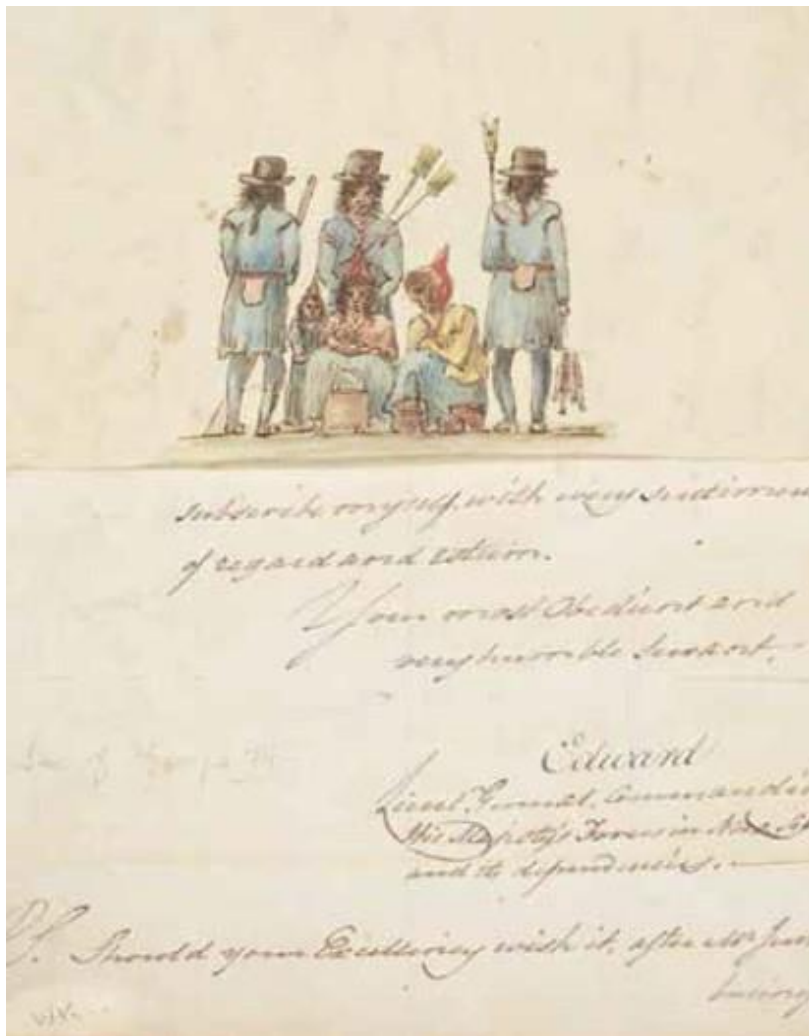 subscribe myself, with every sentimen
of regard and esteem.
Your most Obedient and
very humble Servant.
Edward
Lieut. General. Commandin
His Majesty's Forces in
and its dependencies.
P.S. Should your Excellency wish it, after Mr